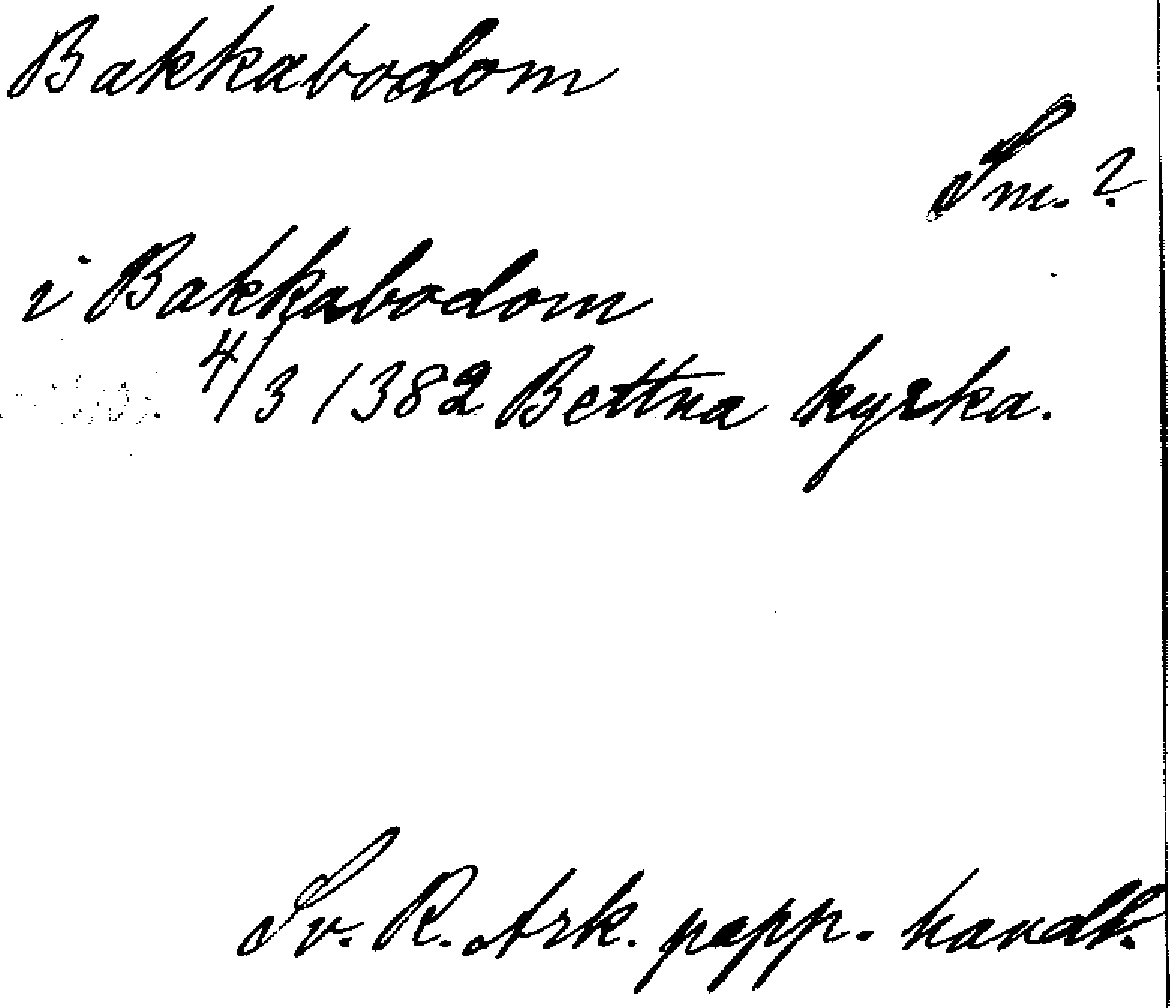 Bakkabodom
Sm. ?
i Bakkabodom
4/3 1382 Bettna kyrka.
Sv. R. Ark. papp. handl.